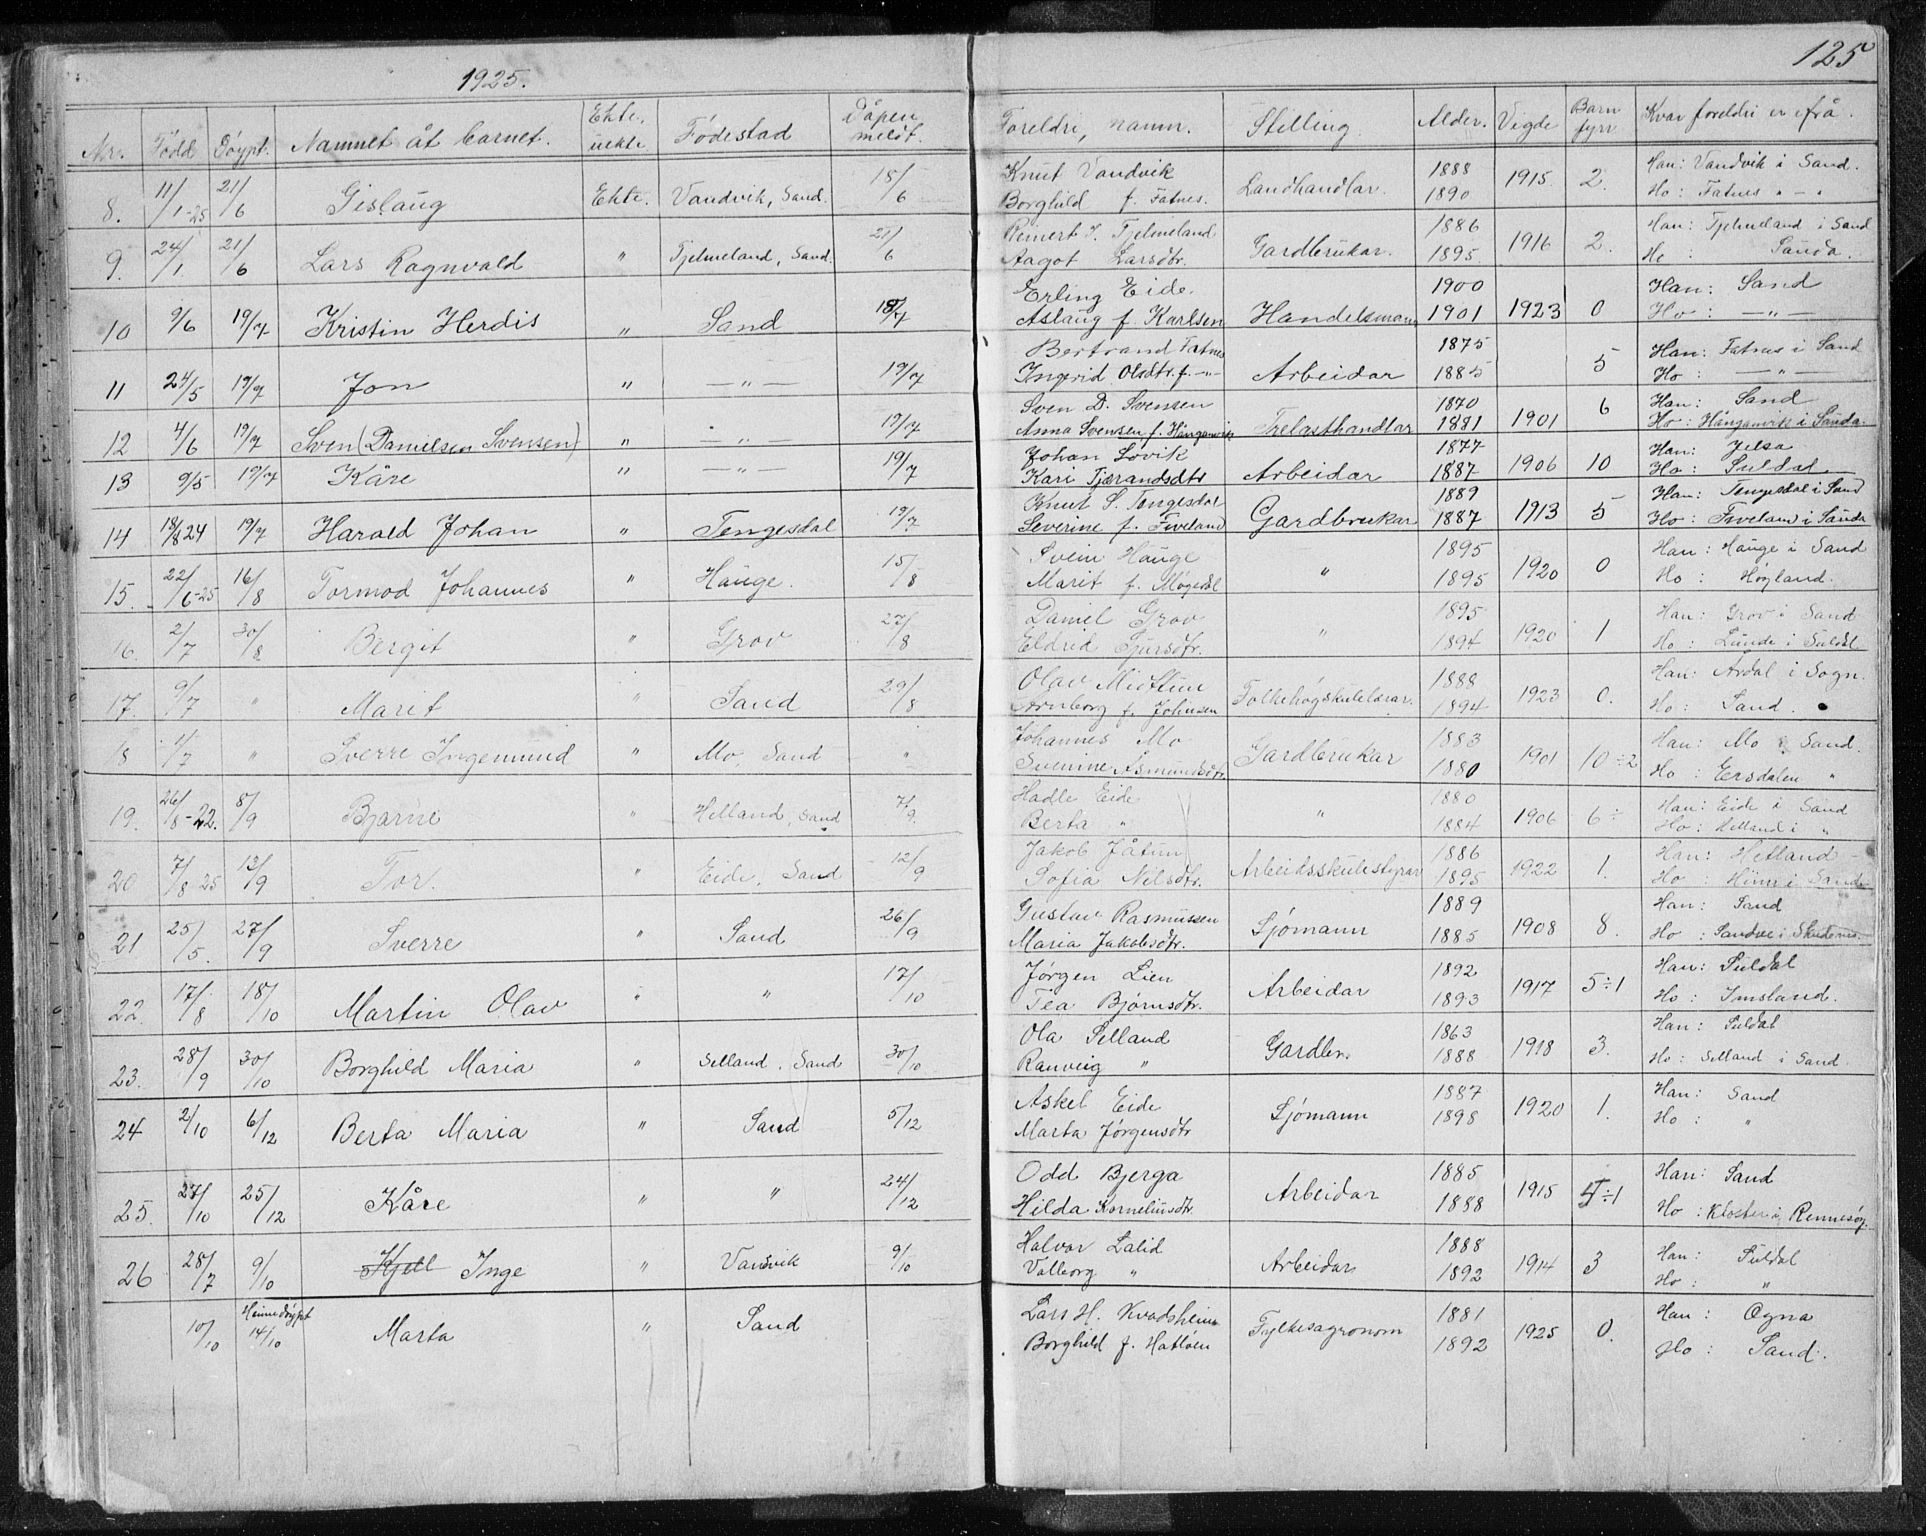 1925.
125
Nr. Fødd Døypt. Namnet åt barnet. Ekte, uekte Fødestad Dåpen meldt. Foreldri, namn. Stilling. Alder. Vigde Barn fyrr. Kvar foreldri er ifrå.
8. 11/1-25 21/6 Gislaug Ekte. Vandvik, Sand. 15/6 Knut Vandvik Landhandlar. 1888 1915. 2. Han: Vandvik i Sand.
Borghild f. Fatnes. 1890 Ho: Fatnes " - "
9. 24/1. 21/6 Lars Ragnvald " Tjelmeland, Sand. 21/6 Reinert T. Tjelmeland Gardbrukar. 1886 1916 2. Han: Tjelmeland i Sand
Aagot Larsdtr. 1895 Ho: Sauda.
10 9/6 19/7 Kristin Herdis " Sand 18/7 Erling Eide. Handelsmann 1900 1923 0 Han: Sand
Aslaug f. Karlsen 1901 Ho: — " —
11 24/5 19/7 Jon " — " — 19/7 Bertrand Fatnes Arbeidar 1875 5 Han: Fatnes i Sand
Ingerid Olsdtr. f. - " - 1885 Ho: — " —
12 4/6 19/7 Sven (Danielsen Svensen) " — " — 19/7 Sven D. Svensen Trelasthandlar 1870 1901 6 Han: Sand
Anna Svensen f. Hångamvik 1881 Ho: Hångamvik i Sauda.
13 9/5 19/7 Kåre " — " — 19/7 Johan Lovik Arbeidar 1877 1906 10 Han: Jelsa
Kari Tjærandsdtr 1887 Ho: Suldal
14 18/8 24 19/7 Harald Johan " Tengesdal 19/7 Knut S. Tengesdal Gardbrukar 1889 1913 5 Han: Tengesdal i Sand
Severine f. Fiveland 1887 Ho: Fiveland i Sauda
15. 22/6-25 16/8 Tormod Johannes " Hauge. 15/8 Svein Hauge " 1895 1920 0 Han: Hauge i Sand
Marit f. Møgedal 1895 Ho: Høgland.
16. 2/7 30/8 Bergit " Grov 27/8 Daniel Grov " 1895 1920 1 Han: Grov i Sand
Eldrid Sjursdtr. 1894 Ho: Lunde i Suldal
17. 9/7 " Marit " Sand 29/8 Olav Midttun Folkehøgskulelærar. 1888 1923 0. Han: Årdal i Sogn.
Arnborg f. Johnsen 1894 Ho: Sand.
18 1/7 " Sverre Ingemund " Mo, Sand " Johannes Mo Gardbrukar 1883 1901 10÷2 Han: Mo i Sand.
Svenine Asmundsdtr. 1880 Ho: Ersdalen "
19. 26/8-22. 8/9 Bjarne " Helland, Sand 7/9. Hadle Eide " 1880 1906 6÷ Han: Eide i Sand
Berta " 1884 Ho: Helland i "
20 7/8 25 13/9 Tor. " Eide, Sand 12/9 Jakob Jåtun Arbeidsskulestyrar 1886 1922 1. Han: Hetland
Sofia Nilsdtr. 1895 Ho: Hiim i Sand
21 25/5. 27/9 Sverre " Sand 26/9 Gustav Rasmussen Sjømann 1889 1908 8. Han: Sand
Maria Jakobsdtr. 1885 Ho: Sandve i Skudenes
22. 17/8 18/10 Martin Olav " " 17/10 Jørgen Lien Arbeidar 1892 1917 5÷1 Han: Suldal
Tea Bjørnsdtr. 1893 Ho: Imsland.
23. 28/9 30/10 Borghild Maria " Selland, Sand 30/10 Ola Selland Gardbr. 1863 1918 3. Han: Suldal
Ranveig " 1888 Ho: Selland i Sand.
24 2/10 6/12 Berta Maria " Sand 5/12 Askel Eide Sjømann 1887 1920 1. Han: Sand
Marta Jørgensdtr 1898 Ho: "
25. 27/10 25/12 Kåre " " 24/12 Odd Bjerga Arbeidar 1885 1915 5÷1 Han: Sand
Hilda Korneliusdtr. 1888 Ho: Kloster i Rennesøy.
26 28/7 9/10 Kjell Inge " Vandvik 9/10 Halvor Lalid Arbeidar 1888 1914 3 Han: Suldal
Valborg " 1892 Ho: "
10/10 Heimedøypt 14/10 Marta " Sand Lars H. Kvadsheim Fylkesagronom 1881 1925 0. Han: Ogna
Borghild f. Hatløen 1892 Ho: Sand.